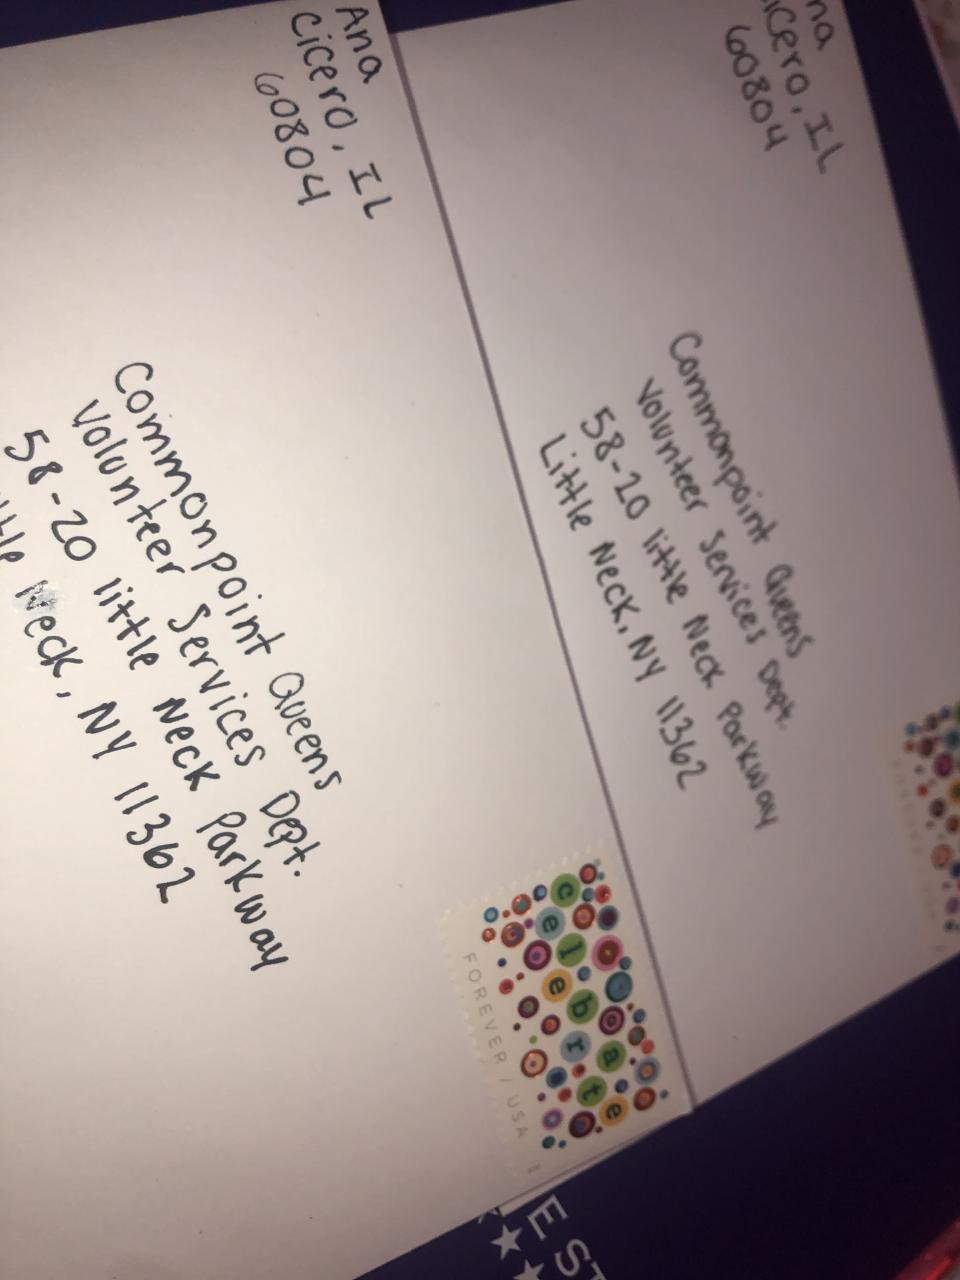 Ana
Cicero, IL
60804
Commonpoint Queens
Volunteer Services Dept.
58-20 little Neck Parkway
Neck, NY 11362
celebrate
FOREVER / USA
Cicero, IL
60804
Commonpoint Queens
Volunteer Services Dept.
58-20 little Neck Parkway
Little Neck, NY 11362
EST